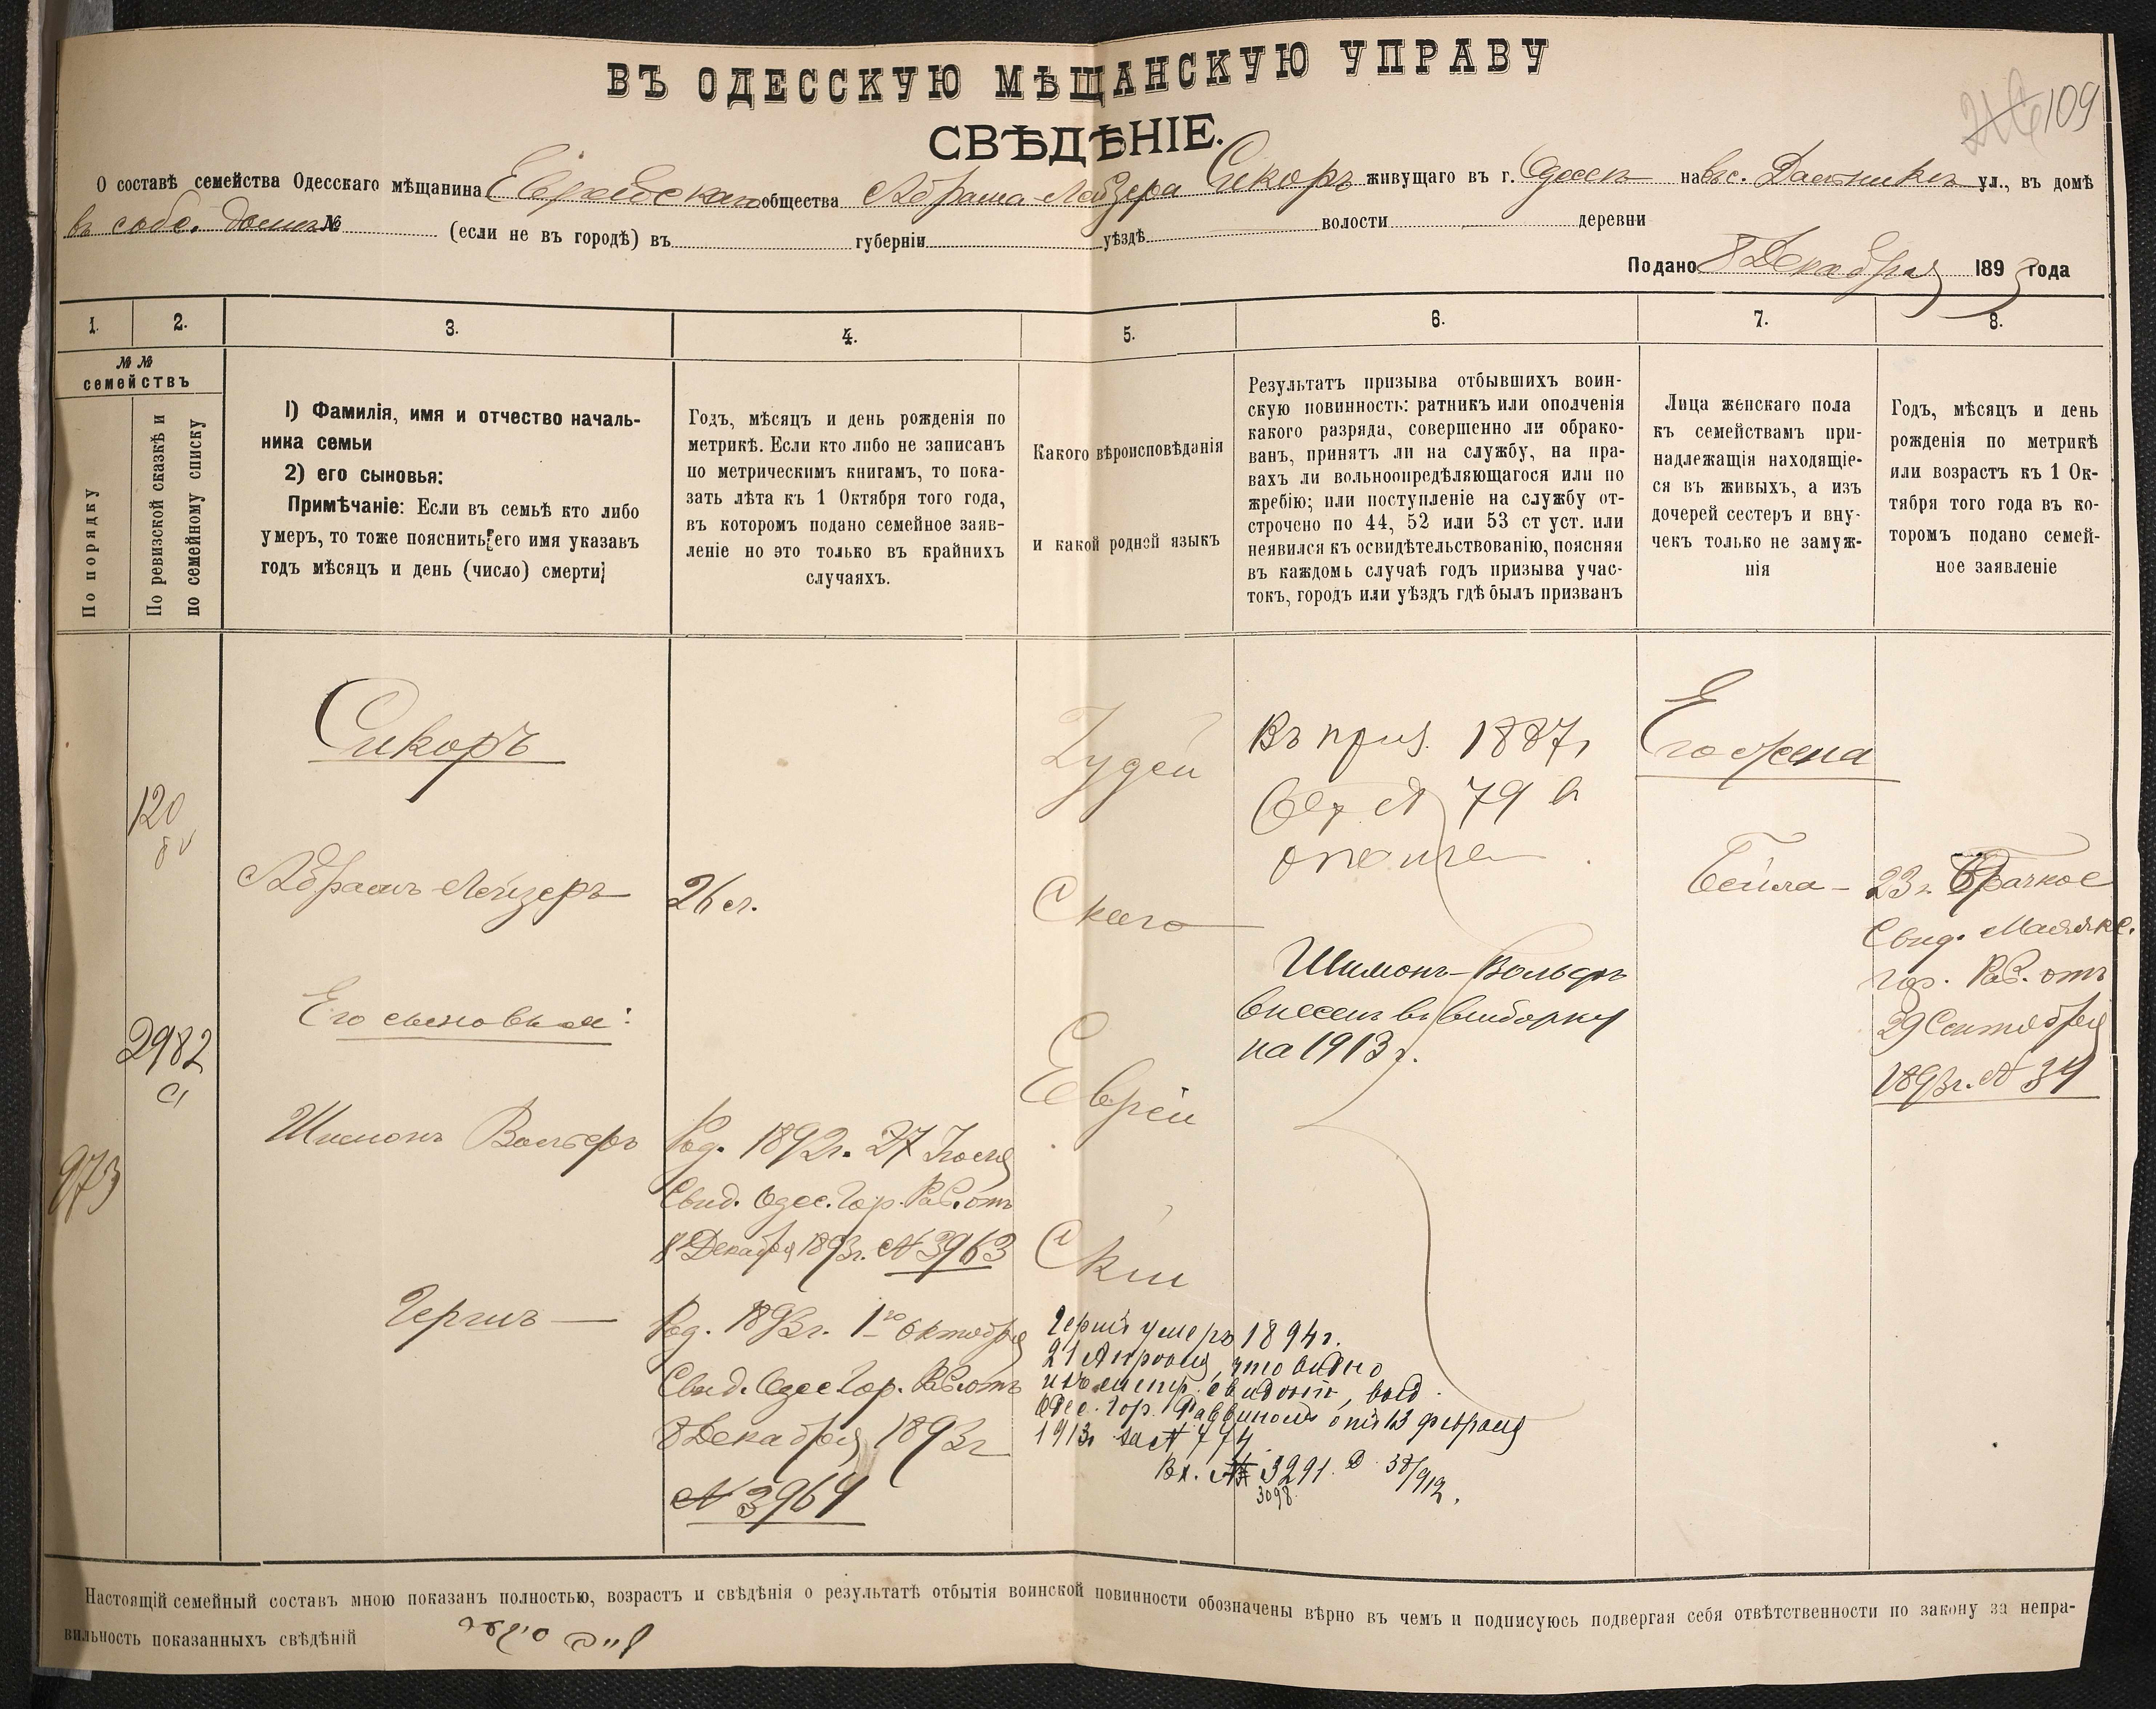 ВЪ ОДЕССКУЮ МѢЩАНСКУЮ УПРАВУ
СВѢДѢНІЕ.
109
О составѣ семейства Одесскаго мѣщанина Еврейскаго общества Абрама-Лейзера Сикоръ живущаго въ г. Одессѣ на ул., въ домѣ
въ собс. домѣ № (если не въ городѣ) въ губерніи уѣздѣ волости деревни
Подано 8 Декабря 1893 года
1. 2. 3. 4. 5. 6. 7. 8.
№№
семействъ
По порядку
По ревизской сказкѣ и
по семейному списку
1) Фамилія, имя и отчество началь-
ника семьи
2) его сыновья:
Примѣчаніе: Если въ семьѣ кто либо
умеръ, то тоже пояснить его имя указавъ
годъ мѣсяцъ и день (число) смерти
Годъ, мѣсяцъ и день рожденія по
метрикѣ. Если кто либо не записанъ
по метрическимъ книгамъ, то пока-
зать лѣта къ 1 Октября того года,
въ которомъ подано семейное заяв-
леніе но это только въ крайнихъ
случаяхъ.
Какого вѣроисповѣданія
и какой родной языкъ
Результатъ призыва отбывшихъ воин-
скую повинность: ратникъ или ополченія
какого разряда, совершенно ли обрако-
ванъ, принятъ ли на службу, на пра-
вахъ ли вольноопредѣляющагося или по
жребію; или поступленіе на службу от-
строчено по 44, 52 или 53 ст уст. или
неявился къ освидѣтельствованію, поясняя
въ каждомъ случаѣ годъ призыва учас-
токъ, городъ или уѣздъ гдѣ былъ призванъ
Лица женскаго пола
къ семействамъ при-
надлежащія находящіе-
ся въ живыхъ, а изъ
дочерей сестеръ и вну-
чекъ только не замуж-
нія
Годъ, мѣсяцъ и день
рожденія по метрикѣ
или возрастъ къ 1 Ок-
тября того года въ ко-
торомъ подано семей-
ное заявленіе
973
120
2982
Сикоръ
Абрамъ-Лейзеръ
Его сыновья:
Шимонъ Вольфъ
Гершъ —
26 л.
Род. 1892г. 27 Іюля
Свид. Одес. Гор. Рав. отъ
8 Декабря 1893г. № 3963
Род. 1893г. 1го Октября
Свид. Одес Гор. Рав. отъ
8 Декабря 1893г
№ 3964
Іудей
Скаго
Еврей
Скій
Въ приз. 1887г
№ 79 в
Шимонъ-Вольфъ
внесенъ въ выборку
на 1913 г.
Гершъ умеръ 1894г.
21 Апрѣля, что видно
изъ метр. свидѣт., выд.
Одес. Гор. Раввиномъ отъ 13 февраля
1913г за № 774
Вх. № 3291. Д. 38/912.
3098.
Его жена
Бейла —
23 г. Брачное
Свид. Маякс.
гор. Рав. отъ
29 Сентября
1893г. № 34
Настоящій семейный составъ мною показанъ полностью, возрастъ и свѣдѣнія о результатѣ отбытія воинской повинности обозначены вѣрно въ чемъ и подписуюсь подвергая себя отвѣтственности по закону за непра-
вильность показанныхъ свѣдѣній